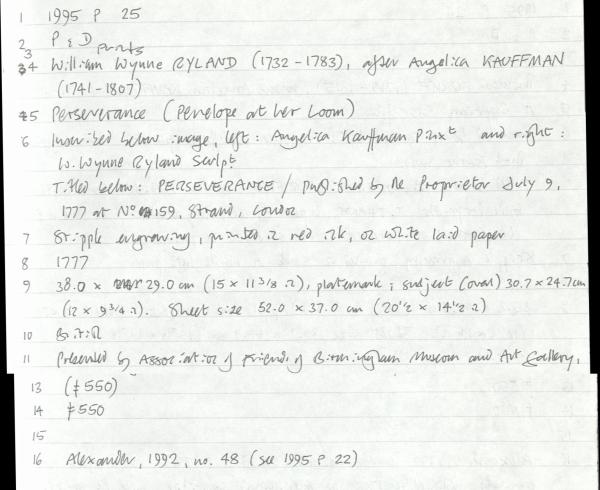 1 1995 P 25
2 P & D
3 prints
4 William Wynne RYLAND (1732-1783), after Angelica KAUFFMAN
(1741-1807)
5 Perseverance (Penelope at her Loom)
6 Inscribed below image, left: Angelica Kauffman Pinxt and right:
W. Wynne Ryland Sculpt
Titled below: PERSEVERANCE / published by the Proprietor July 9,
1777 at No 159, Strand, London
7 Stipple engraving, printed in red ink, on white laid paper
8 1777
9 38.0 x 29.0 cm (15 x 11 3/8 in), platemark; subject (oval) 30.7 x 24.7cm
(12 x 9 3/4 in). Sheet size 52.0 x 37.0 cm (20 1/2 x 14 1/2 in)
10 British
11 Presented by Association of Friends of Birmingham Museum and Art Gallery,
13 (£550)
14 £550
15
16 Alexander, 1992, no. 48 (see 1995 P 22)